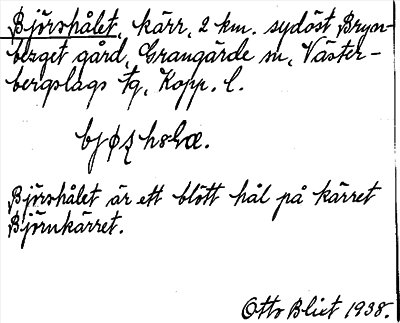 Björshålet, kärr, 2 km. sydöst Bryn-
berget gård, Grangärde sn, Väster-
bergslags tg, Kopp. l.
Björshålet är ett blött hål på kärret
Björnkärret.
Otto Blixt 1938.